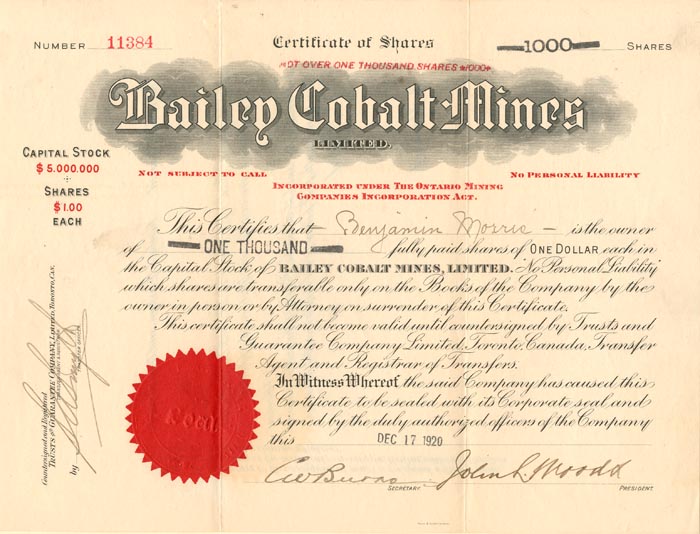 NUMBER 11384
Certificate of Shares
1000 SHARES
NOT OVER ONE THOUSAND SHARES $1000$
Bailey Cobalt Mines
LIMITED.
CAPITAL STOCK
$5.000.000
SHARES
$1.00
EACH
NOT SUBJECT TO CALL
NO PERSONAL LIABILITY
INCORPORATED UNDER THE ONTARIO MINING
COMPANIES INCORPORATION ACT.
This Certifies that Benjamin Morris is the owner
of ONE THOUSAND fully paid shares of ONE DOLLAR each in
the Capital Stock of BAILEY COBALT MINES, LIMITED. "No Personal Liability"
which shares are transferable only on the Books of the Company by the
owner in person or by Attorney on surrender of this Certificate.
This certificate shall not become valid until countersigned by Trusts and
Guarantee Company Limited, Toronto, Canada, Transfer
Agent and Registrar of Transfers.
In Witness Whereof the said Company has caused this
Certificate to be sealed with its Corporate seal and
signed by the duly authorized officers of the Company
this DEC 17 1920
SECRETARY
PRESIDENT.
Countersigned and Registered
TRUSTS AND GUARANTEE COMPANY, LIMITED, TORONTO, CAN.
by